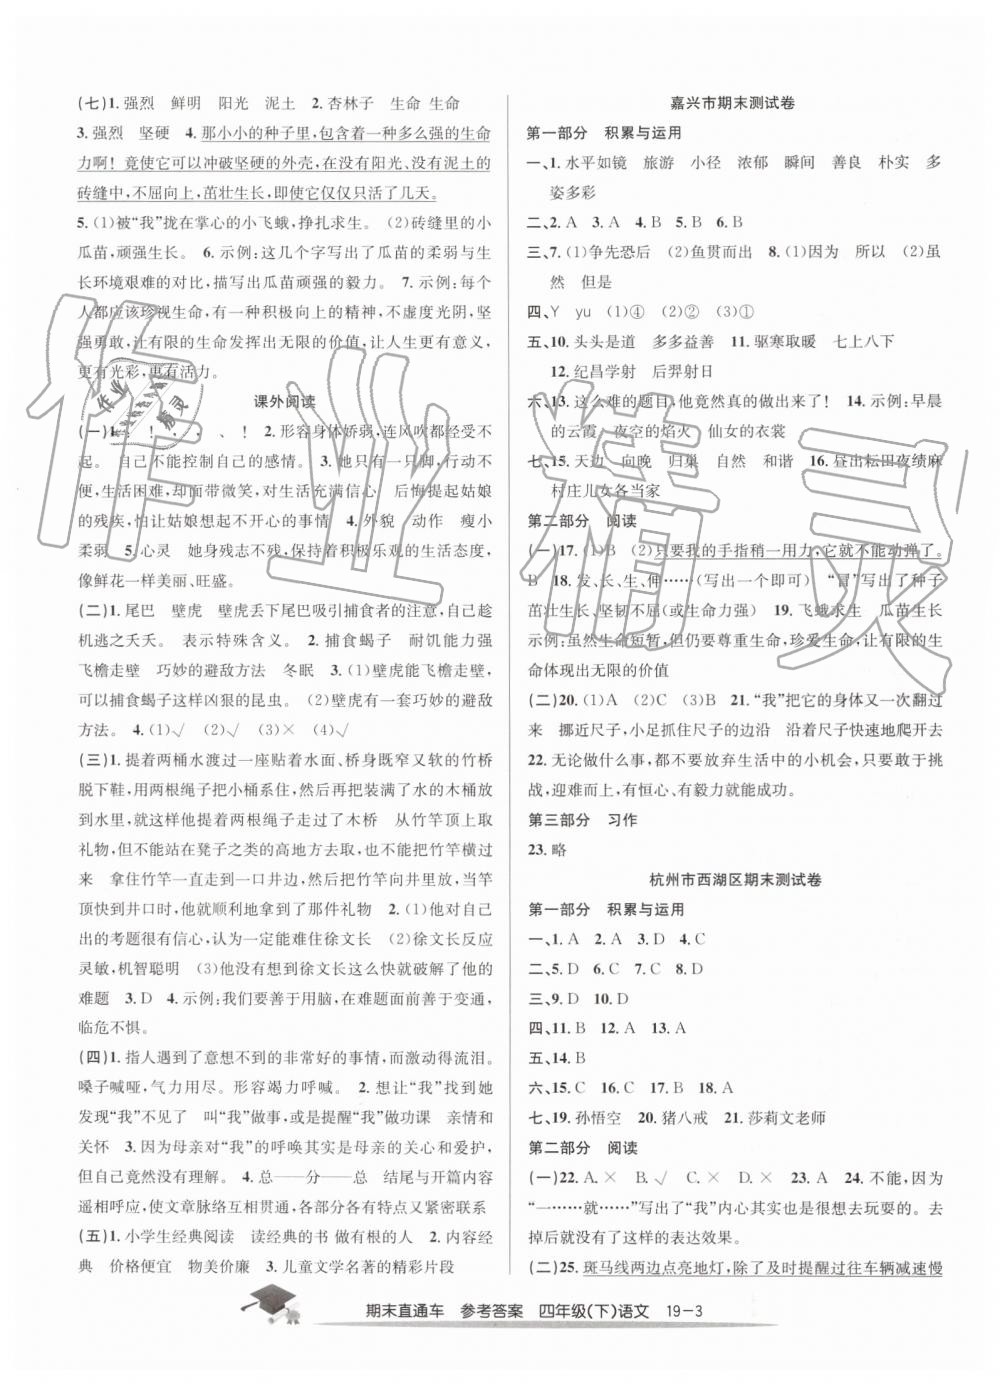 (七)1. 强烈　鲜明　阳光　泥土　2. 杏林子　生命 生命
3. 强烈　坚硬　4. 那小小的种子里,包含着一种多么强的生命
力啊！竟使它可以冲破坚硬的外壳,在没有阳光、没有泥土的
砖缝中,不屈向上,茁壮生长,即使它仅仅只活了几天。
5. (1)被“我”拢在掌心的小飞蛾,挣扎求生。　(2)砖缝里的小
瓜苗,顽强生长。　6. 示例:这几个字写出了瓜苗的柔弱与生
长环境艰难的对比,描写出瓜苗顽强的毅力。　7. 示例:每个
人都应该珍视生命,有一种积极向上的精神,不虚度光阴,坚
强勇敢,让有限的生命发挥出无限的价值,让人生更有意义,
更有光彩,更有活力。
课外阅读
(一)1. ：　！　，　，　、　！　2. 形容身体娇弱,连风吹都经受不
起。　自己不能控制自己的感情。　3. 她只有一只脚,行动不
便,生活困难,却面带微笑,对生活充满信心　后悔提起姑娘
的残疾,怕让姑娘想起不开心的事情　4. 外貌　动作　瘦小
柔弱　5. 心灵　她身残志不残,保持着积极乐观的生活态度,
像鲜花一样美丽、旺盛。
(二)1. 尾巴　壁虎　壁虎丢下尾巴吸引捕食者的注意,自己趁
机逃之夭夭。　表示特殊含义。　2. 捕食蝎子　耐饥能力强
飞檐走壁　巧妙的避敌方法　冬眠　3. (1)壁虎能飞檐走壁,
可以捕食蝎子这样凶狠的昆虫。　(2)壁虎有一套巧妙的避敌
方法。　4. (1)√　(2)√　(3)×　(4)√
(三)1. 提着两桶水渡过一座贴着水面、桥身既窄又软的竹桥
脱下鞋,用两根绳子把小桶系住,然后再把装满了水的木桶放
到水里,就这样他提着两根绳子走过了木桥　从竹竿顶上取
礼物,但不能站在凳子之类的高处,也不能把竹竿横倒下来
来　拿住竹竿走到一口井边,然后把竹竿慢慢放下井去,当竿
顶快到井口时,他就顺利地拿到了那件礼物　2. (1)他对自己
出的考题很有信心,认为一定能难住徐文长　(2)徐文长反应
灵敏,机智聪明　(3)他没有想到徐文长这么快就破解了他的
难题　3. D　4. 示例:我们要善于用脑,在难题面前善于变通,
临危不惧。
(四)1. 指人遇到了意想不到的非常好的事情,而激动得流泪。
嗓子喊哑,气力用尽。形容竭力呼喊。　2. 想让“我”找到她
发现“我”不见了　叫“我”做事,或是提醒“我”做功课　亲情和
关怀　3. 因为母亲对“我”的呼唤其实是母亲的关心和爱护,
但自己竟然没有理解。　4. 总——分——总　结尾与开篇内容
遥相呼应,使文章脉络互相贯通,各部分各有特点又紧密联系
(五)1. 小学生经典阅读　读经典的书 做有根的人　2. 内容经
典　价格便宜　物美价廉　3. 儿童文学名著的精彩片段
嘉兴市期末测试卷
第一部分　积累与运用
一、1. 水平如镜　旅游　小径　浓郁　瞬间　善良　朴实　多
姿多彩
二、2. A　3. A　4. B　5. B　6. B
三、7. (1)争先恐后　(2)鱼贯而出　8. (1)因为　所以　(2)虽
然　但是
四、Y　yu　(1)④　(2)②　(3)①
五、10. 头头是道　多多益善　11. 驱寒取暖　七上八下
12. 纪昌学射　后羿射日
六、13. 这么难的题目,他竟然真的做出来了！　14. 示例:早晨
的云霞　夜空的焰火　仙女的衣裳
七、15. 天边　向晚　归巢　自然　和谐　16. 昼出耘田夜绩麻
村庄儿女各当家
第二部分　阅读
(一)17. (1)B　(2)只要我的手指稍一用力,它就不能动弹了。
B　18. 发、长、生、伸……(写出一个即可)　“冒”写出了种子
茁壮生长、坚韧不屈(或生命力强)　19. 飞蛾求生　瓜苗生长
示例:虽然生命短暂,但仍要尊重生命,珍爱生命,让有限的生
命体现出无限的价值
(二)20. (1)A　(2)C　(3)B　21. “我”把它的身体又一次翻过
来　挪近尺子,小足抓住尺子的边沿　沿着尺子快速地爬开去
22. 无论做什么事,都不要放弃生活中的小机会,要敢于挑
战,迎难而上,有恒心、有毅力就能成功。
第三部分　习作
23. 略
杭州市西湖区期末测试卷
第一部分　积累与运用
一、1. A　2. A　3. D　4. C
二、5. D　6. C　7. C　8. D
三、9. D　10. D
四、11. B　12. A　13. A
五、14. B
六、15. C　16. B　17. B　18. A
七、19. 孙悟空　20. 猪八戒　21. 莎莉文老师
第二部分　阅读
(一)22. A. ×　B. √　C. ×　D. ×　23. A　24. 不能,因为
“一……就……”写出了“我”内心其实也是很想去玩耍的。去
掉后就没有这样的表达效果。
(二)25. 斑马线两边点亮地灯,除了及时提醒过往车辆减速慢
期末直通车　参考答案　四年级(下)语文　19-3
作业精灵
作业
精灵